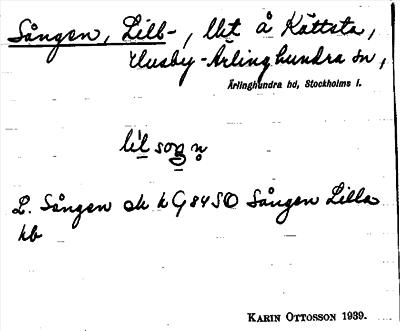 Sången, Lill-, lht å Kättsta,
Husby-Ärlinghundra sn,
Ärlinghundra hd, Stockholms l.
lil soŋn
L. Sången ek k G 84 SO Sången Lilla
kb
KARIN OTTOSSON 1939.